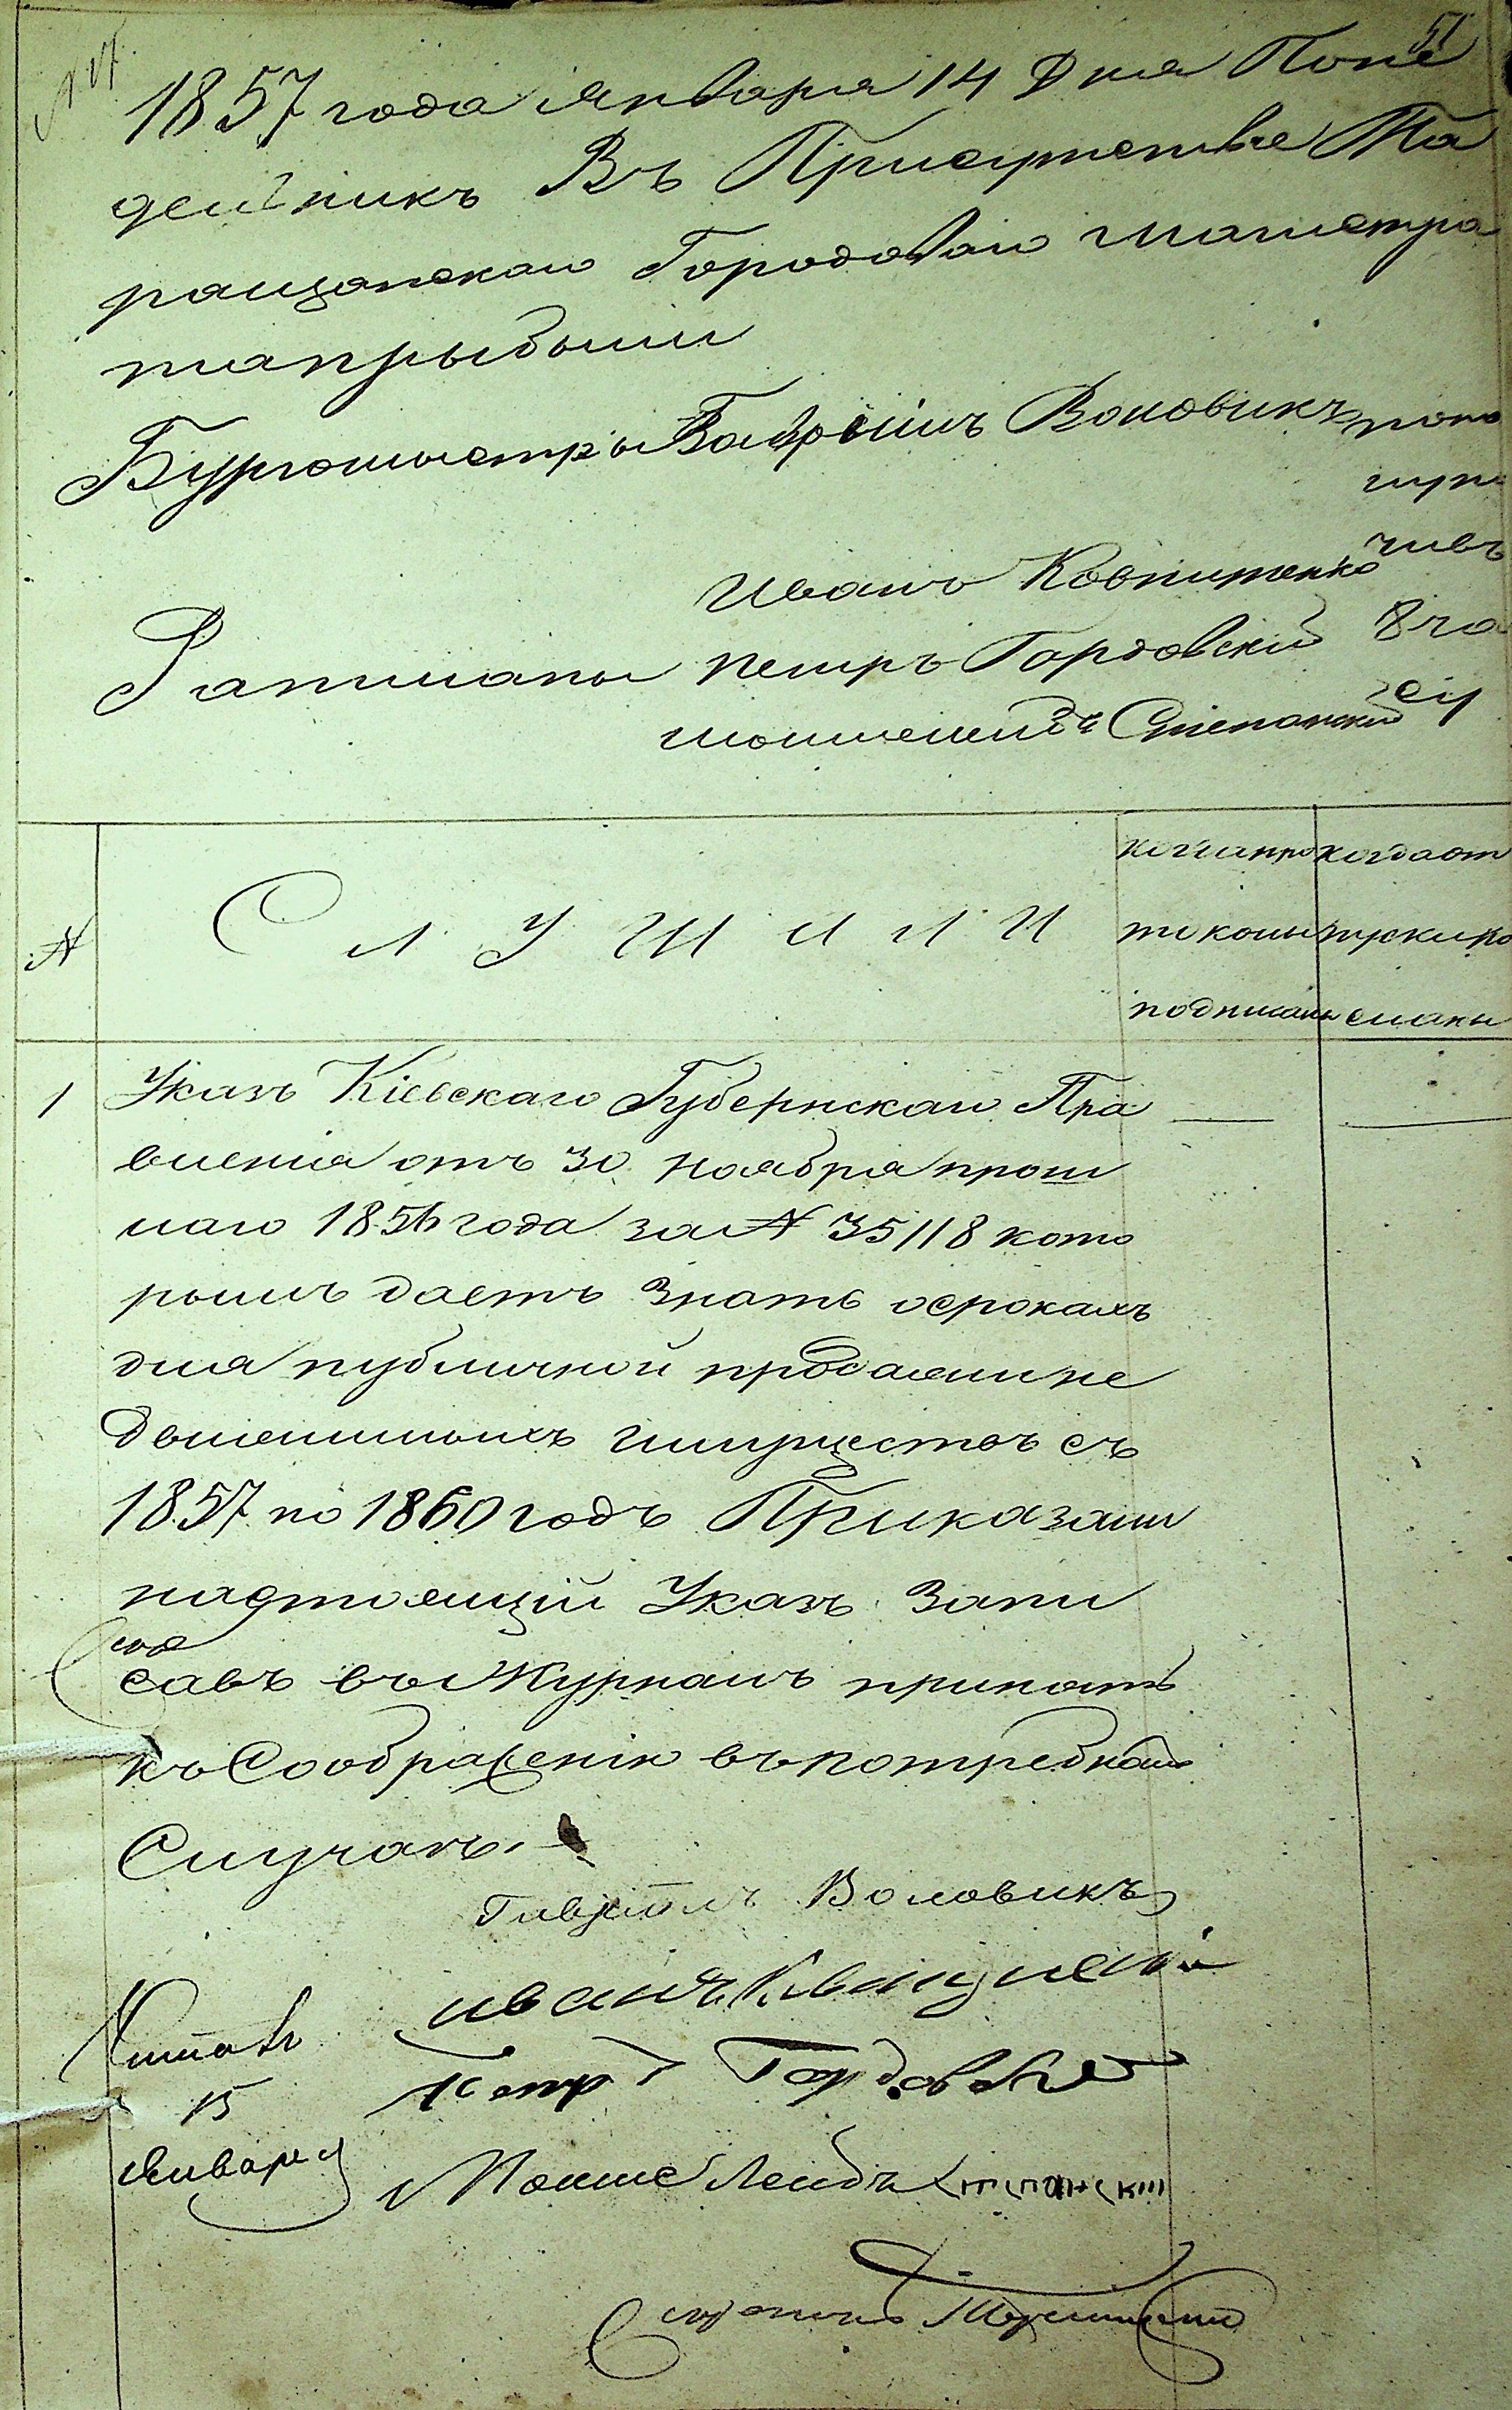 51
1857 года Января 14 Дня Поне
дельникъ Въ Присутствіе Та
ращанскаго Городоваго Магистра
та прибыли
Бургомистры Гаврiилъ Воловикъ пополу
ночи въ
Иванъ
Ратманы Петръ Гордовскій 8 ча
Мошеленъ Степанскій
№
СЛУШАЛИ
когда про
токолы
подписаны
когда от
пуски по
сланы
1 Указъ Кіевскаго Губернскаго Пра
вленія отъ 30 ноября прош
лаго 1856 года за № 35118 кото
рымъ даетъ знать о срокахъ
для публичной продажи не
движимыхъ имуществъ съ
1857 по 1860 годъ Приказали
настоящій Указъ запи
савъ въ Журналъ принять
къ Соображенію въ потребномъ
Случаѣ.
Гавріилъ Воловикъ
Иванъ
Петръ Гордовскій
Мошко Лейбъ Степанскій
Читалъ
15
Января